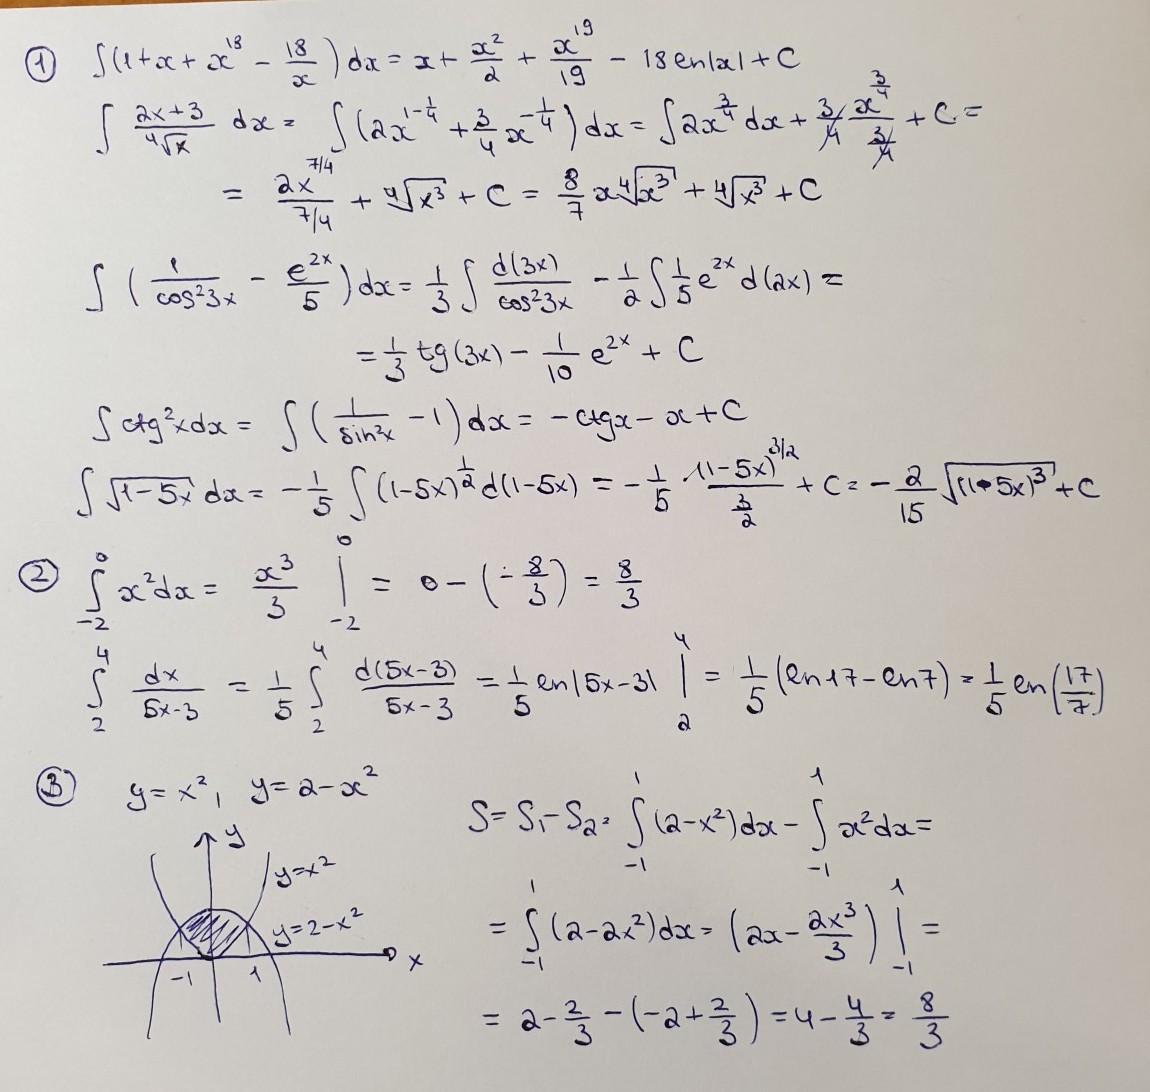 ① ∫(1+x+x^18 - 18/x)dx = x + x²/2 + x^19/19 - 18 ln|x| + C
∫ (2x+3)/⁴√x dx = ∫(2x^(1-1/4) + 3/4 x^(-1/4))dx = ∫2x^(3/4) dx + 3/4 x^(3/4)/(3/4) + C =
= 2x^(7/4)/(7/4) + ⁴√x³ + C = 8/7 x ⁴√x³ + ⁴√x³ + C
∫(1/cos²3x - e^(2x)/5)dx = 1/3 ∫ d(3x)/cos²3x - 1/2 ∫ 1/5 e^(2x) d(2x) =
= 1/3 tg(3x) - 1/10 e^(2x) + C
∫ctg²x dx = ∫(1/sin²x - 1)dx = -ctgx - x + C
∫√(1-5x) dx = -1/5 ∫(1-5x)^(1/2) d(1-5x) = -1/5 · (1-5x)^(3/2)/(3/2) + C = -2/15 √((1-5x)³) + C
② ∫_{-2}^{0} x²dx = x³/3 |_{-2}^{0} = 0 - (-8/3) = 8/3
∫_{2}^{4} dx/(5x-3) = 1/5 ∫_{2}^{4} d(5x-3)/(5x-3) = 1/5 ln|5x-3| |_{2}^{4} = 1/5 (ln17 - ln7) = 1/5 ln(17/7)
③ y = x², y = 2-x²
y
y=x²
y=2-x²
-1 1 x
S = S₁ - S₂ = ∫_{-1}^{1} (2-x²)dx - ∫_{-1}^{1} x²dx =
= ∫_{-1}^{1} (2-2x²)dx = (2x - 2x³/3) |_{-1}^{1} =
= 2 - 2/3 - (-2 + 2/3) = 4 - 4/3 = 8/3